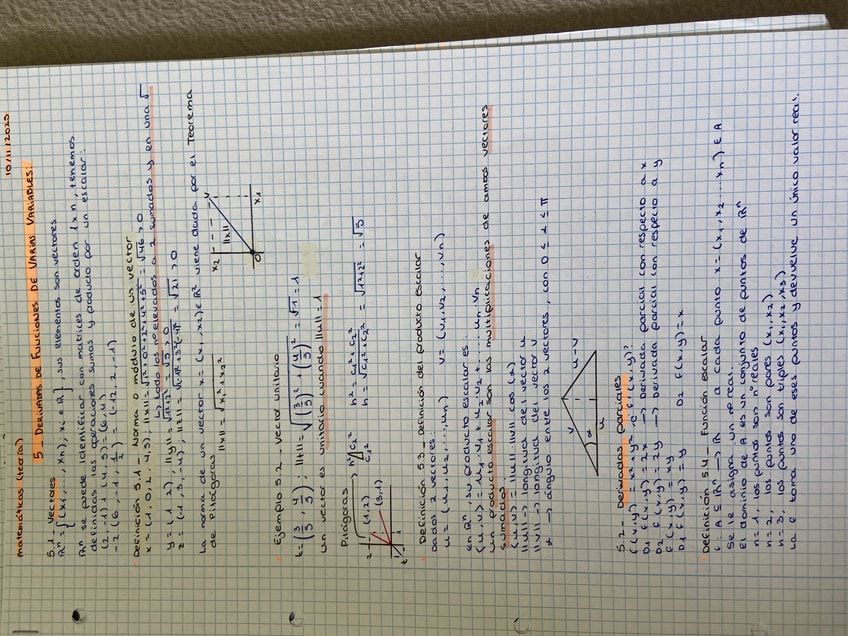 matemáticas (teoría)
10/11/2025
5 - DERIVADAS DE FUNCIONES DE VARIAS VARIABLES.
5.1 - Vectores
Rⁿ = {(x1, ..., xn); xi ∈ R}, sus elementos son vectores
Rⁿ se puede identificar con matrices de orden 1xn, tenemos
definidas las operaciones sumas y producto por un escalar:
(2,-1) + (4,5) = (6,4)
-2 (6,-1,1/2) = (-12, 2, -1)
Definición 5.1 - Norma o módulo de un vector
x = (1, 0, 2, 4, 5); ||x|| = √1²+0²+2²+4²+5² = √46 > 0
↳ todo los nº elevados a 2 sumados y en una √
y = (1, 2); ||y|| = √1²+2² = √5 > 0
z = (-1, 3, -4); ||z|| = = √21 > 0
La norma de un vector x = (x1, x2) ∈ R² viene dada por el Teorema
de Pitágoras
||x|| = √x1²+x2²
x2
||x||
v
0
x1
Ejemplo 5.2 - Vector unitario
t = (3/5, 4/5); ||t|| = √(3/5)² + (4/5)² = √1 = 1
un vector es unitario cuando ||u|| = 1
Pitágoras
h² = c1² + c2²
h = √c1²+c2² = √1²+2² = √5
(1,2)
(3,1)
2
Definición 5.3 - Definición del producto escalar
Dados 2 vectores
u = (u1, u2, ..., un) v = (v1, v2, ..., vn)
en Rⁿ, su producto escalar es:
⟨u,v⟩ = u1·v1 + u2·v2 + ... un·vn
un producto escalar son las multiplicaciones de ambos vectores
sumados
⟨u,v⟩ = ||u|| ||v|| cos (α)
||u|| → longitud del vector u
||v|| → longitud del vector v
α → ángulo entre los 2 vectores, con 0 ≤ α ≤ π
v
α
u
u-v
5.2 - Derivadas parciales
f(x,y) = x²+y² ¿f(x,y)?
D1 f(x,y) = 2x → Derivada parcial con respecto a x
D2 f(x,y) = 2y → Derivada parcial con respecto a y
f(x,y) = xy
D1 f(x,y) = y D2 f(x,y) = x
Definición 5.4 - Función escalar
f: A ⊆ Rⁿ → R a cada punto x = (x1, x2 ... xn) ∈ A
Se le asigna un nº real.
El dominio de A es un conjunto de puntos de Rⁿ
n=1, los puntos son nº reales
n=2, los puntos son pares (x1, x2)
n=3, los puntos son triples (x1, x2, x3)
La f toma uno de esos puntos y devuelve un único valor real.